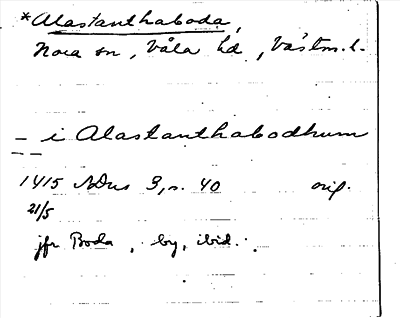 *Alastanthaboda,
Nora sn, Våla hd, Västm. l.
— i Alastanthabodhum
— —
1415 SDns 3, s. 40 orig.
21/5
jfr Boda, by, ibid.